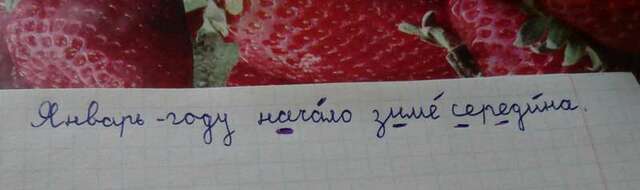 Январь - году нача́ло зиме́ середи́на.